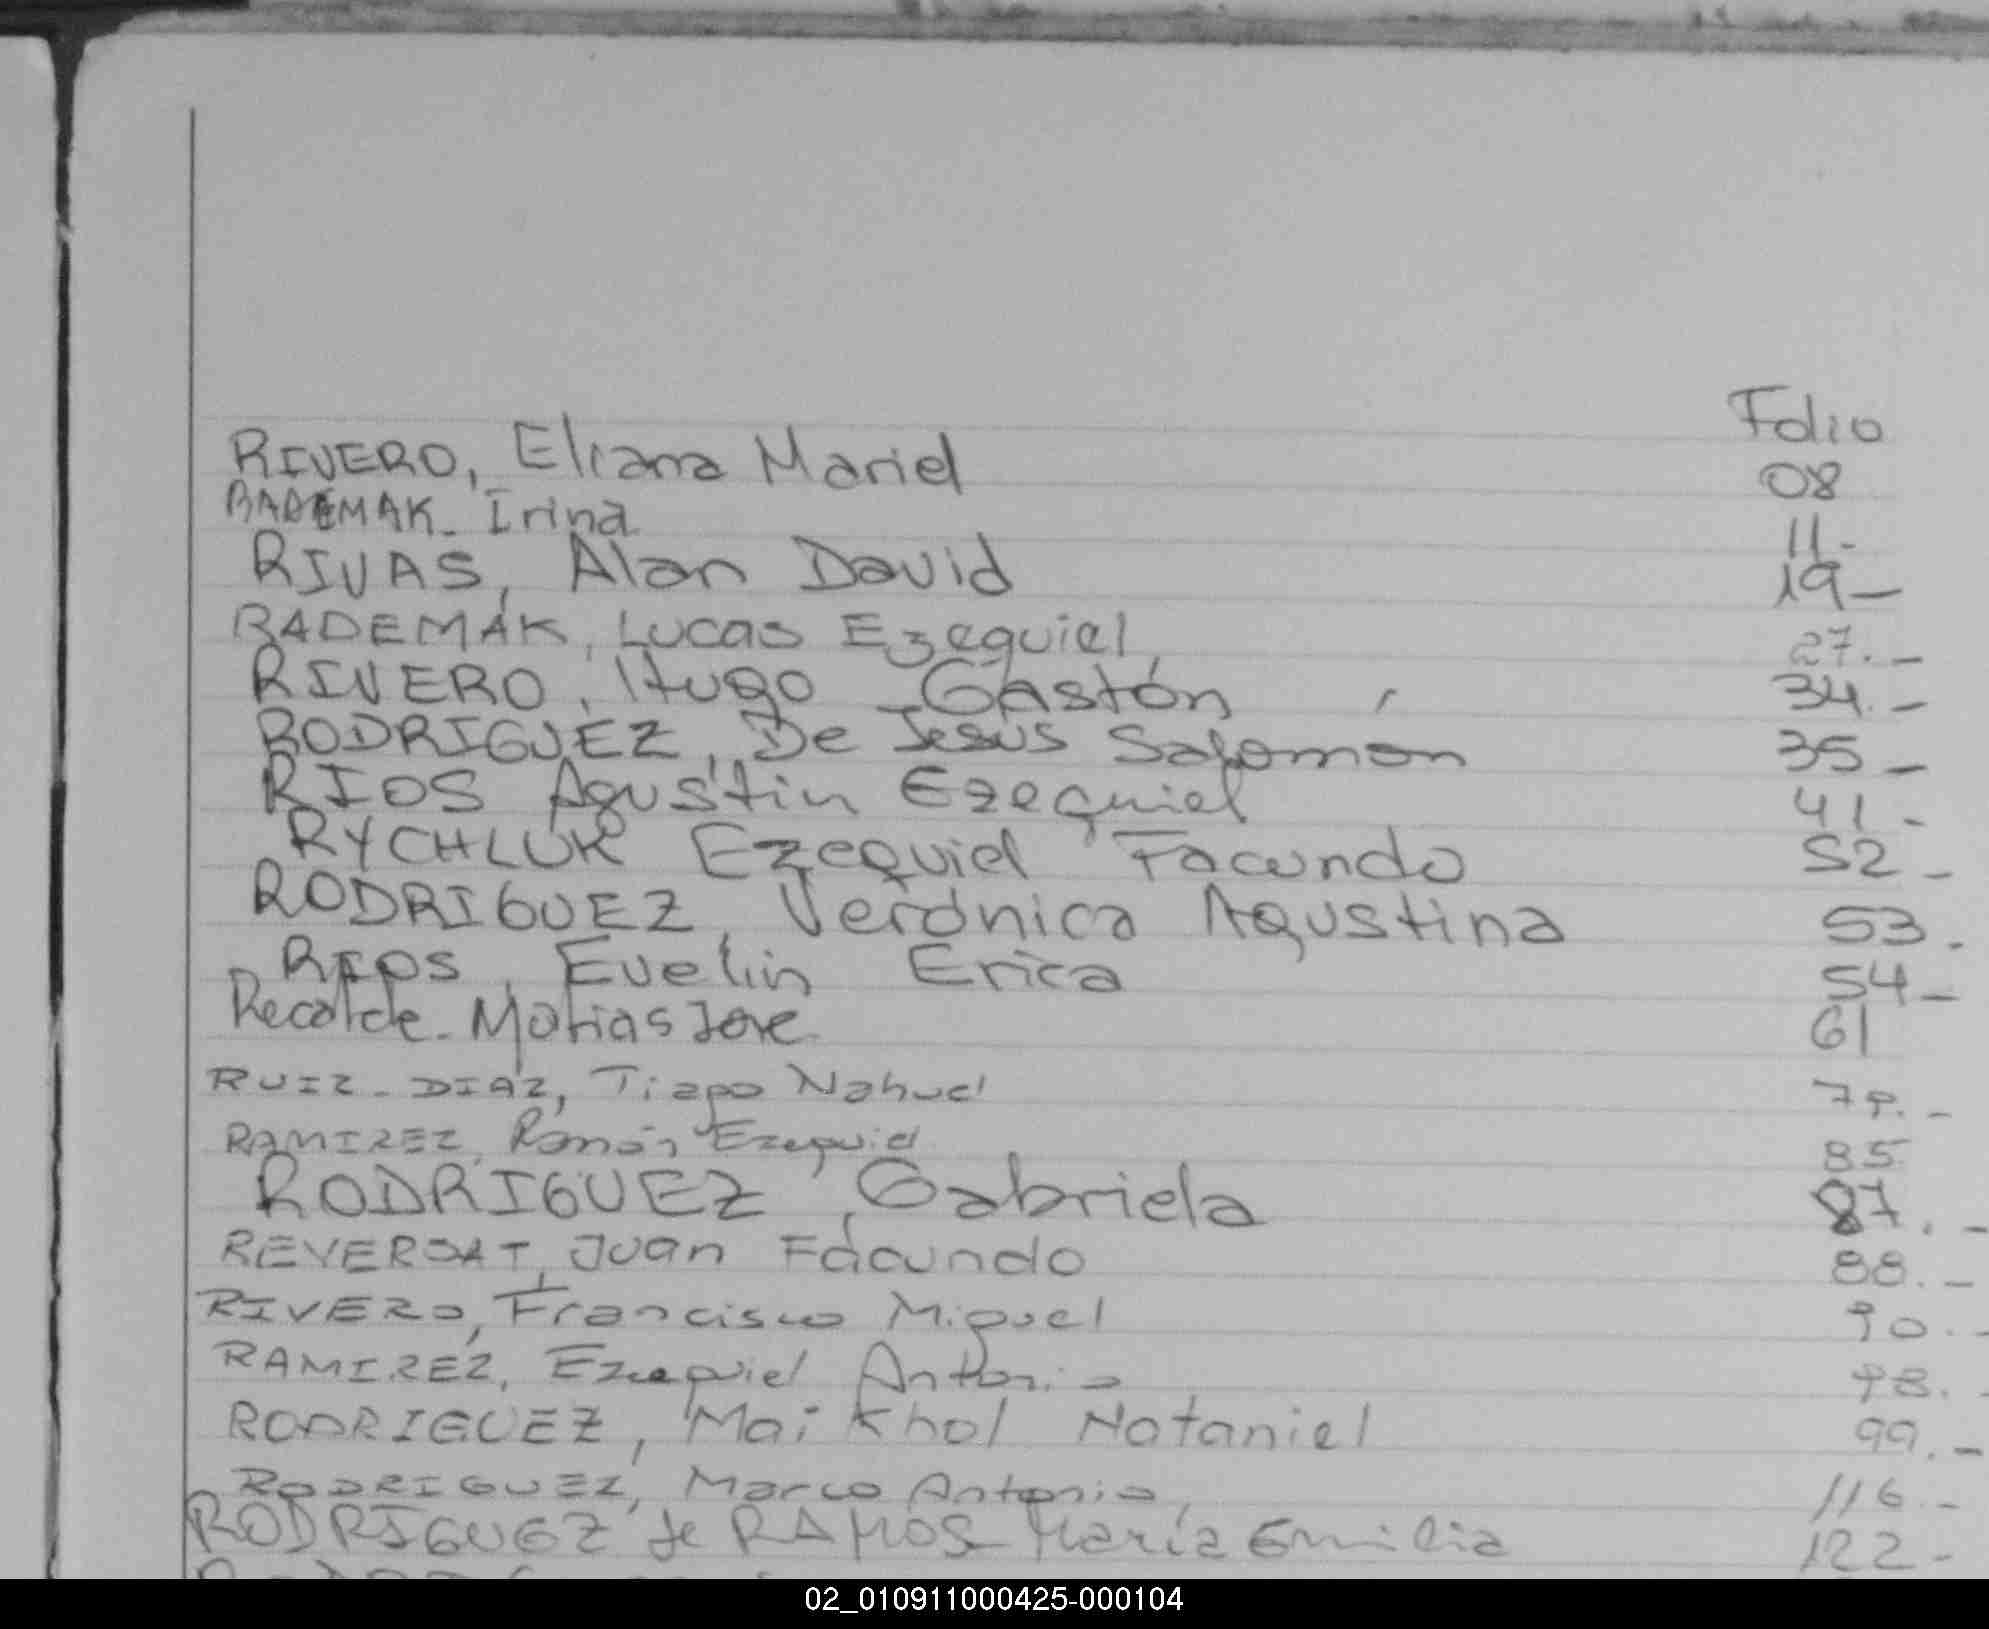 Folio
RIVERO, Eliana Mariel 08
RADEMAK. Irina 11.-
RIVAS, Alan David 19-
RADEMÁK, Lucas Ezequiel, 27.-
RIVERO, Hugo Gastón 34.-
RODRIGUEZ, De Jesus Salomón 35-
RIOS Agustín Ezequiel 41.-
RYCHLUK Ezequiel Facundo 52-
RODRIGUEZ, Verónica Agustina 53.-
RIOS, Evelin Erica 54-
Recalde. Matias Jose. 61
RUIZ-DIAZ, Tiago Nahuel 79.-
RAMIREZ, Ramón Ezequiel 85.
RODRIGUEZ, Gabriela 87.-
REVERSAT, Juan Facundo 88.-
RIVERO, Francisco Miguel 90.-
RAMIREZ, Ezequiel Antonio 98.-
RODRIGUEZ, Mai Khol Nataniel 99.-
RODRIGUEZ, Marco Antonio, 116.-
RODRIGUEZ de RAMOS María Emilia 122-
02_010911000425-000104